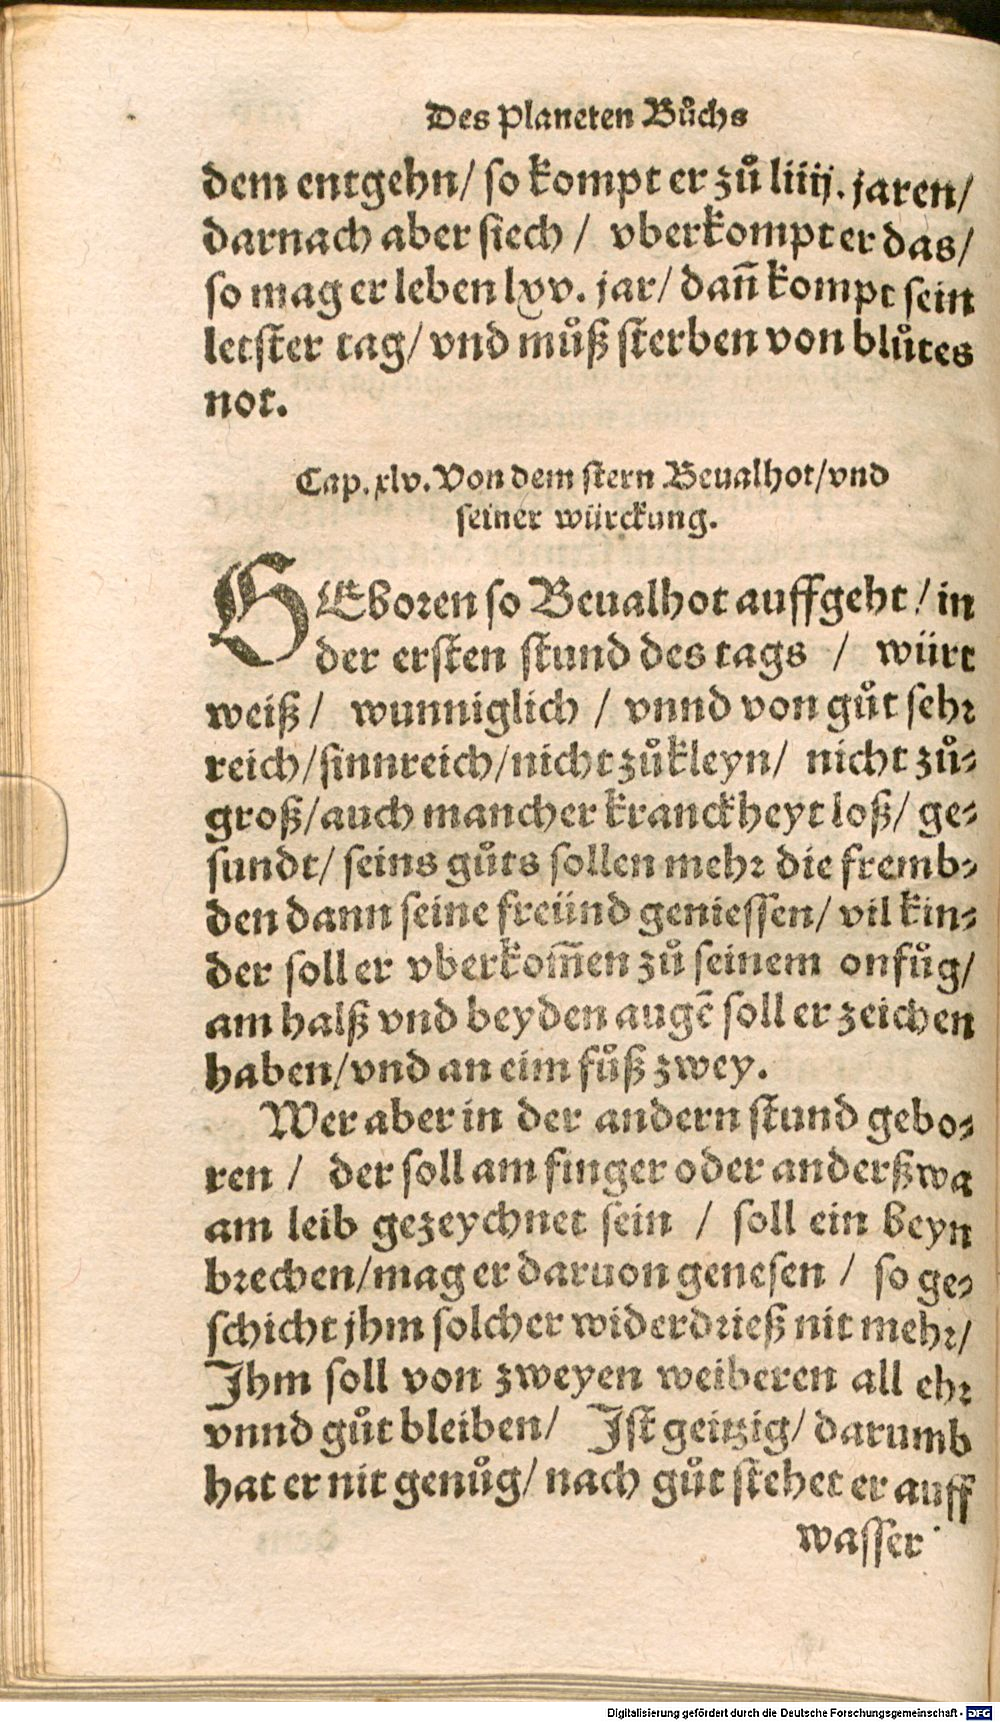 Des Planeten Bůchs
dem entgehn/ so kompt er zů liiij. jaren/
darnach aber siech / vberkompt er das/
so mag er leben lxv. jar/ dañ kompt sein
letster tag/ vnd můß sterben von blůtes
not.
Cap. xlv. Von dem stern Beualhot/ vnd
seiner würckung.
GEboren so Beualhot auffgeht / in
der ersten stund des tags / würt
weiß / wunniglich / vnnd von gůt sehr
reich/ sinnreich/ nicht zůkleyn/ nicht zů-
groß/ auch mancher kranckheyt loß/ ge-
sundt/ seins gůts sollen mehr die fremb-
den dann seine freünd geniessen/ vil kin-
der soll er vberkom̃en zů seinem onfůg/
am halß vnd beyden augẽ soll er zeichen
haben/ vnd an eim fůß zwey.
Wer aber in der andern stund gebo-
ren / der soll am finger oder anderßwa
am leib gezeychnet sein / soll ein beyn
brechen/ mag er daruon genesen / so ge-
schicht jhm solcher widerdrieß nit mehr/
Ihm soll von zweyen weiberen all ehr
vnnd gůt bleiben/ Ist geitzig/ darumb
hat er nit genůg/ nach gůt stehet er auff
wasser
Digitalisierung gefördert durch die Deutsche Forschungsgemeinschaft - DFG